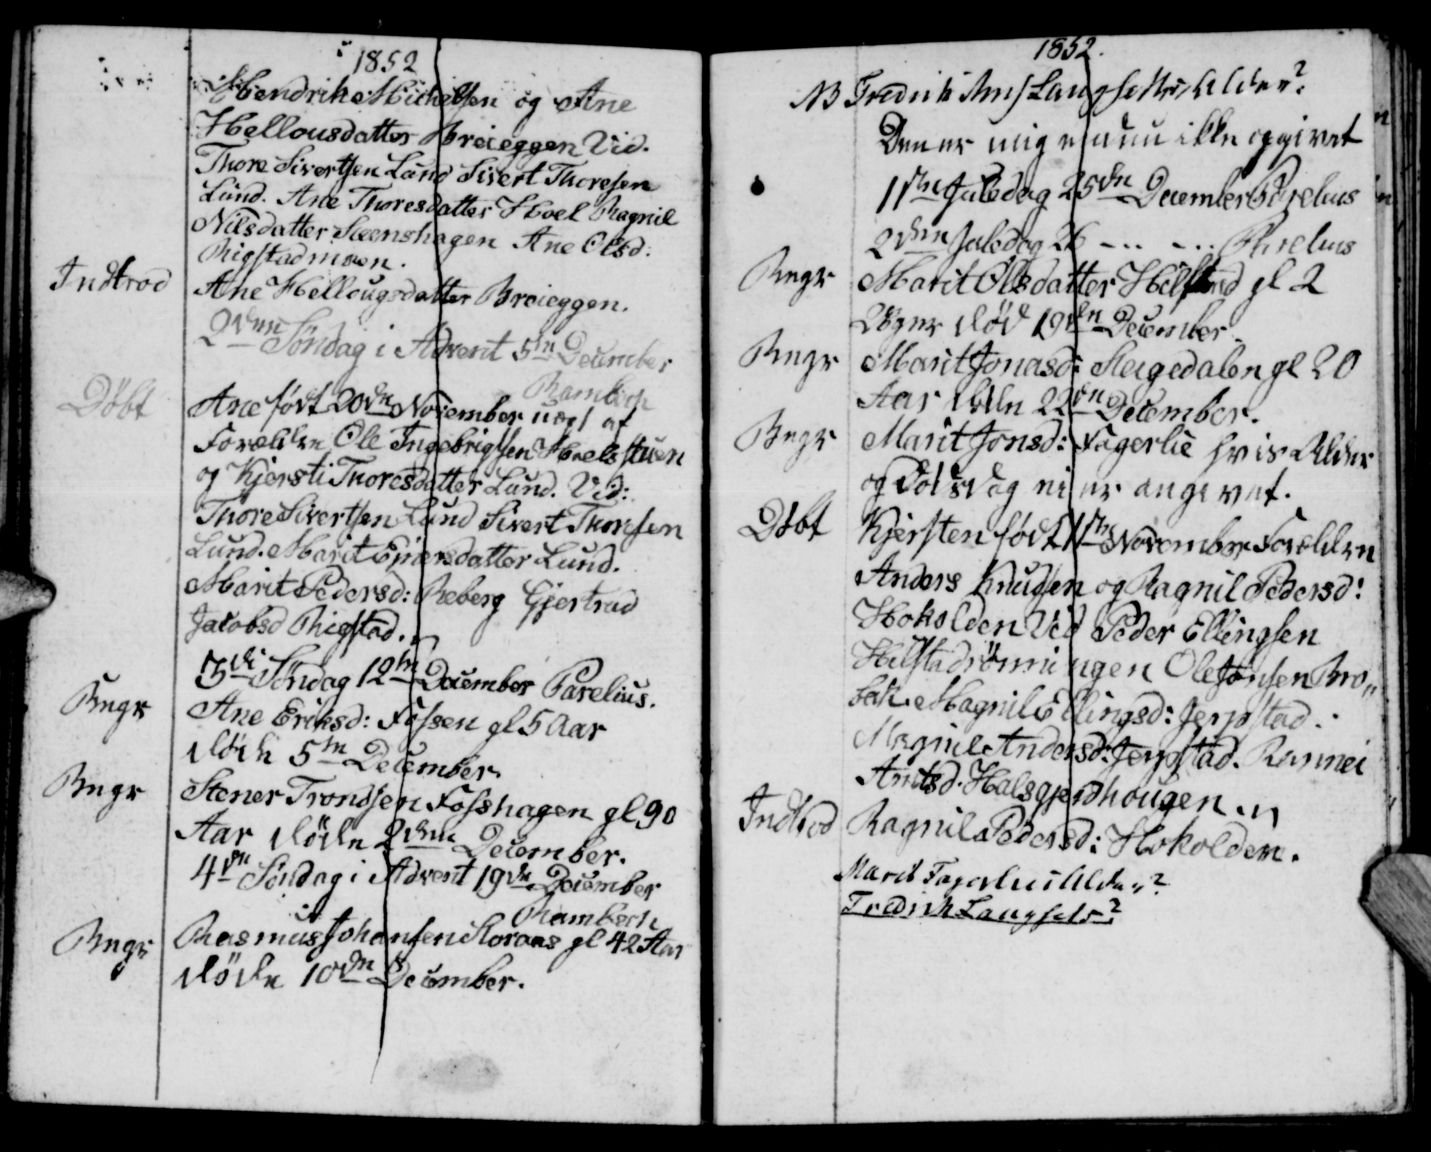 1852
Hendrik Mickelsen og Ane
Hellousdatter Breieggen Vid.
Thore Sivertsen Lund Sivert Thoresen
Lund. Ane Thoresdatter Hoel Ragnil
Nilsdatter Steenshagen Ane Olsd:
Rigstadmoen.
Indtrod Ane Hellougsdatter Breieggen.
2den Søndag i Advent 5te December
Rambech
Døbt Ane født 20de November uægt af
Forældre Ole Ingebrigtsen Hoelsstuen
og Kjersti Thoresdatter Lund. Vid:
Thore Sivertsen Lund Sivert Thoresen
Lund. Marit Ejnersdatter Lund.
Marit Pedersd: Reberg Gjertrud
Jacobsd Rigstad.
3die Søndag 12te December Parelius.
Begr Ane Eriksd: Fossen gl 5 Aar
døde 5te December.
Begr Stener Trondsen Fosshagen gl 90
Aar døde 2den December.
4de Søndag i Advent 19de December
Rambech
Begr Rasmus Johansen Moraas gl 42 Aar
døde 10de December.
1852.
NB Fredrik Langsets Alder?
Den er mig endnu ikke opgivet
1ste Juledag 25de December Parelius
2den Juledag 26 - .. - .. Parelius
Begr Marit Olsdatter Helstad gl 2
Uger død 19de December.
Begr Marit Jonasd: Slegedalen gl 20
Aar døde 22de December.
Begr Marit Jonsd: Fagerlie hvis Alder
og Dødsdag ei er angivet.
Døbt Kjersten født 1ste November Forældre
Anders Knudsen og Ragnil Pedersd:
Hokolden Vid Peder Ellingsen
Helstadrønningen Ole Jonsen Bro„
bak. Magnil Ellingsd: Jerpstad.
Magnil Andersd: Jerpstad. Rannei
Amtsd. Halsgjerdhougen
Indtrod Ragnil Pedersd: Hokolden.
Marit Fagerlies Alder?
Fredrik Langsets?